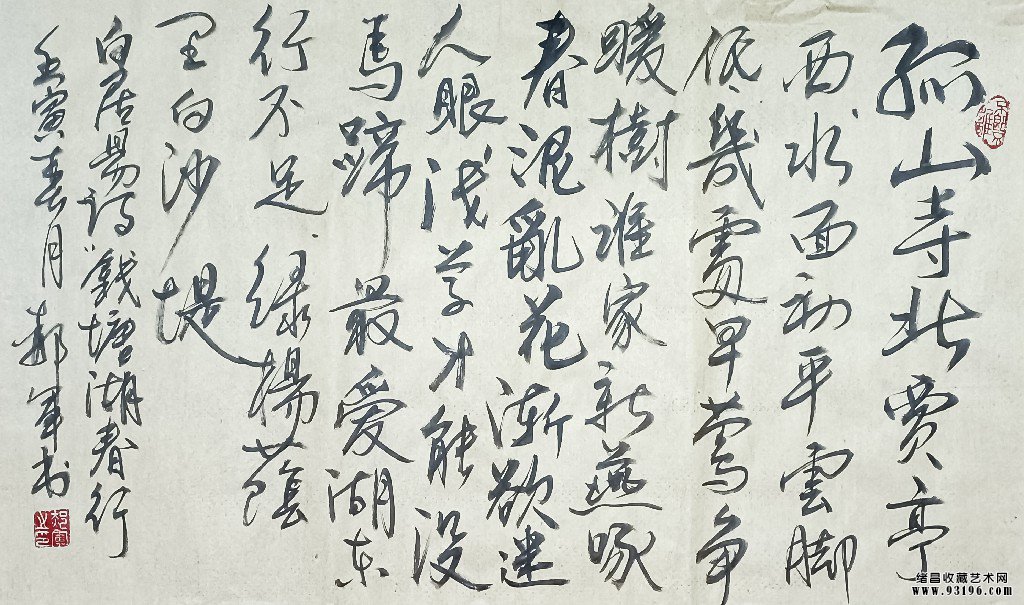 孤山寺北贾亭
西水面初平雲脚
低幾處早莺争
暖樹谁家新燕啄
春混亂花渐欲迷
人眼浅草才能没
馬蹄最爱湖东
行不足绿楊蔭
里白沙堤
白居易诗錢塘湖春行
壬寅春月郝军书
绪昌收藏艺术网
www.93196.com